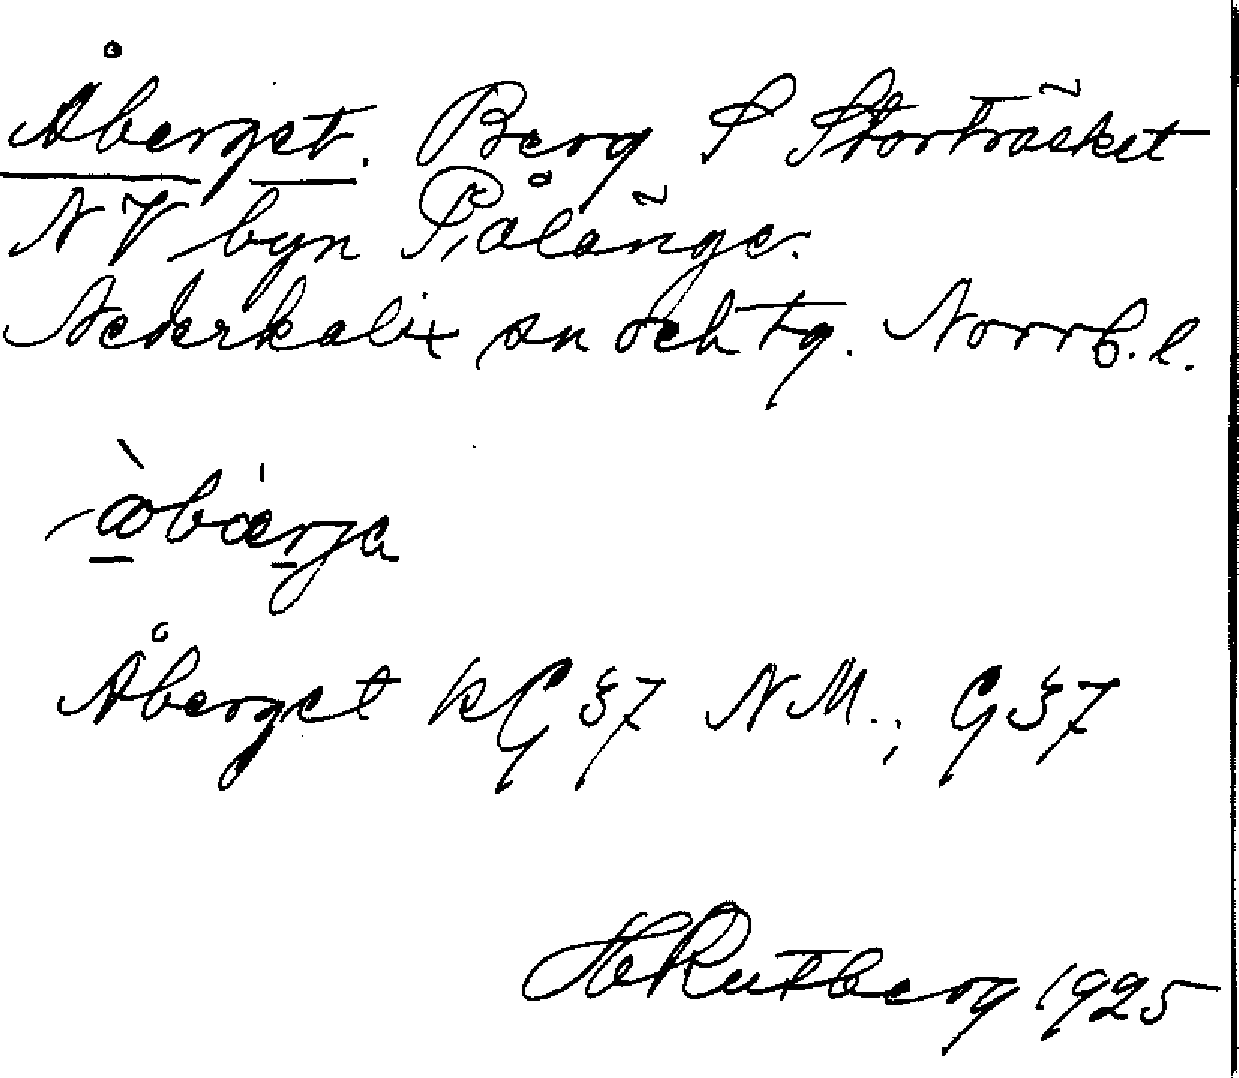 Åberget. Berg S Storträsket
NV byn Pålänge.
Nederkalix sn och tg. Norrb. l.
Åberget kG §7 NM.; G §7
H Rutberg 1925